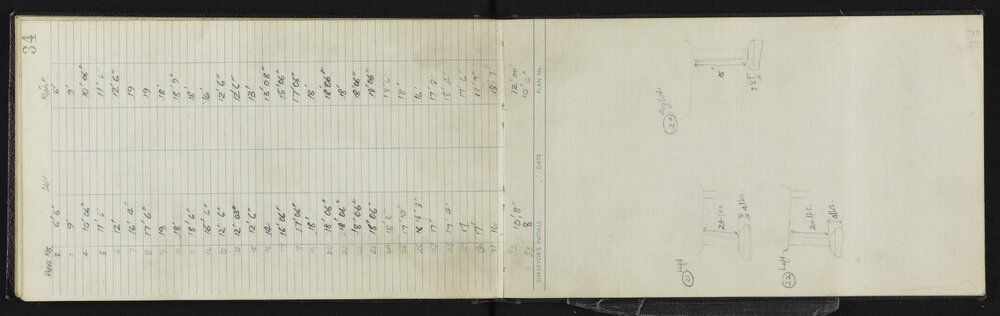 34
Left Right
2 6'6" 6'
3 9' 9'
4 10'06" 10'06"
5 11'6" 11'6"
6 12' 12'6"
7 16'4" 19
8 17'6" 19
9 19 18'
10 18' 18'9"
11 18'6" 18'
12 15'6" 16'
13 12'6" 12'6"
14 12'03" 12'6"
15 12'6" 13'
16 14' 15'08"
17 16'06" 15'06"
18 17'06" 17'06"
19 18' 18'
20 18'06" 18'06"
21 18'06 18'
22 18'06" 18'06"
23 18'06" 18'06"
24 18'2" 18'6"
25 17'10" 18'
26 16
27 17' 17'8"
28 17'4"
29 17' 17'6
30 17' 17'7"
31 16 18'7"
32 10'8" 12'00"
33 8 10'6"
SURVEYOR'S INITIALS DATE PLAN No.
21 Left
24 lks
4 lks.
24 Right
15'
22 Left
24 lks.
4 lks